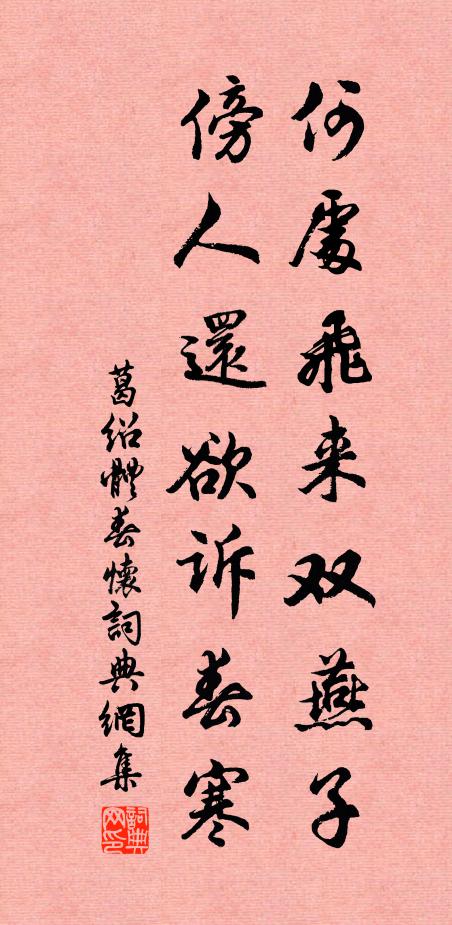 何處飛来双燕子
傍人還欲诉春寒
葛绍體春懷詞典網集
詞典网印